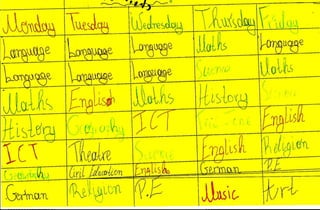 Monday Tuesday Wednesday Thursday Friday
Language Language Language Maths Language
Language Language Language Science Maths
Maths English Maths History
History Geography ICT English
ICT Theatre Science English Religion
Geography Civil Education English German P.E
German Religion P.E Music Art